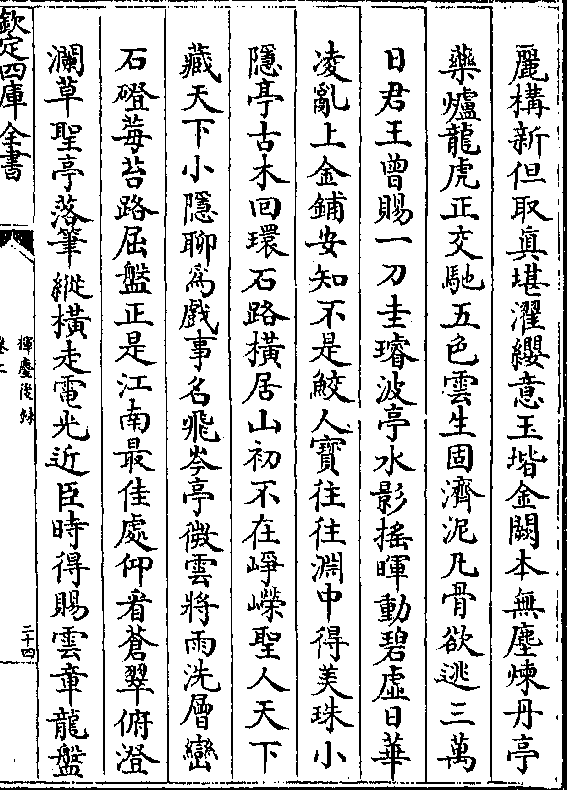 麗構新但取真堪濯纓意玉堦金闕本無塵煉丹亭
藥爐龍虎正交馳五色雲生固濟泥凡骨欲逃三萬
日君王曾賜一刀圭璿波亭水影搖暉動碧虛日華
凌亂上金鋪安知不是鮫人寶往往淵中得美珠小
隱亭古木回環石路橫居山初不在崢嶸聖人天下
藏天下小隱聊為戲事名飛岑亭微雲將雨洗層巒
石磴莓苔路屈盤正是江南最佳處仰看蒼翠俯澄
瀾草聖亭落筆縱橫走電光近臣時得賜雲章龍盤
欽定四庫全書
揮麈後錄
卷二
二十四